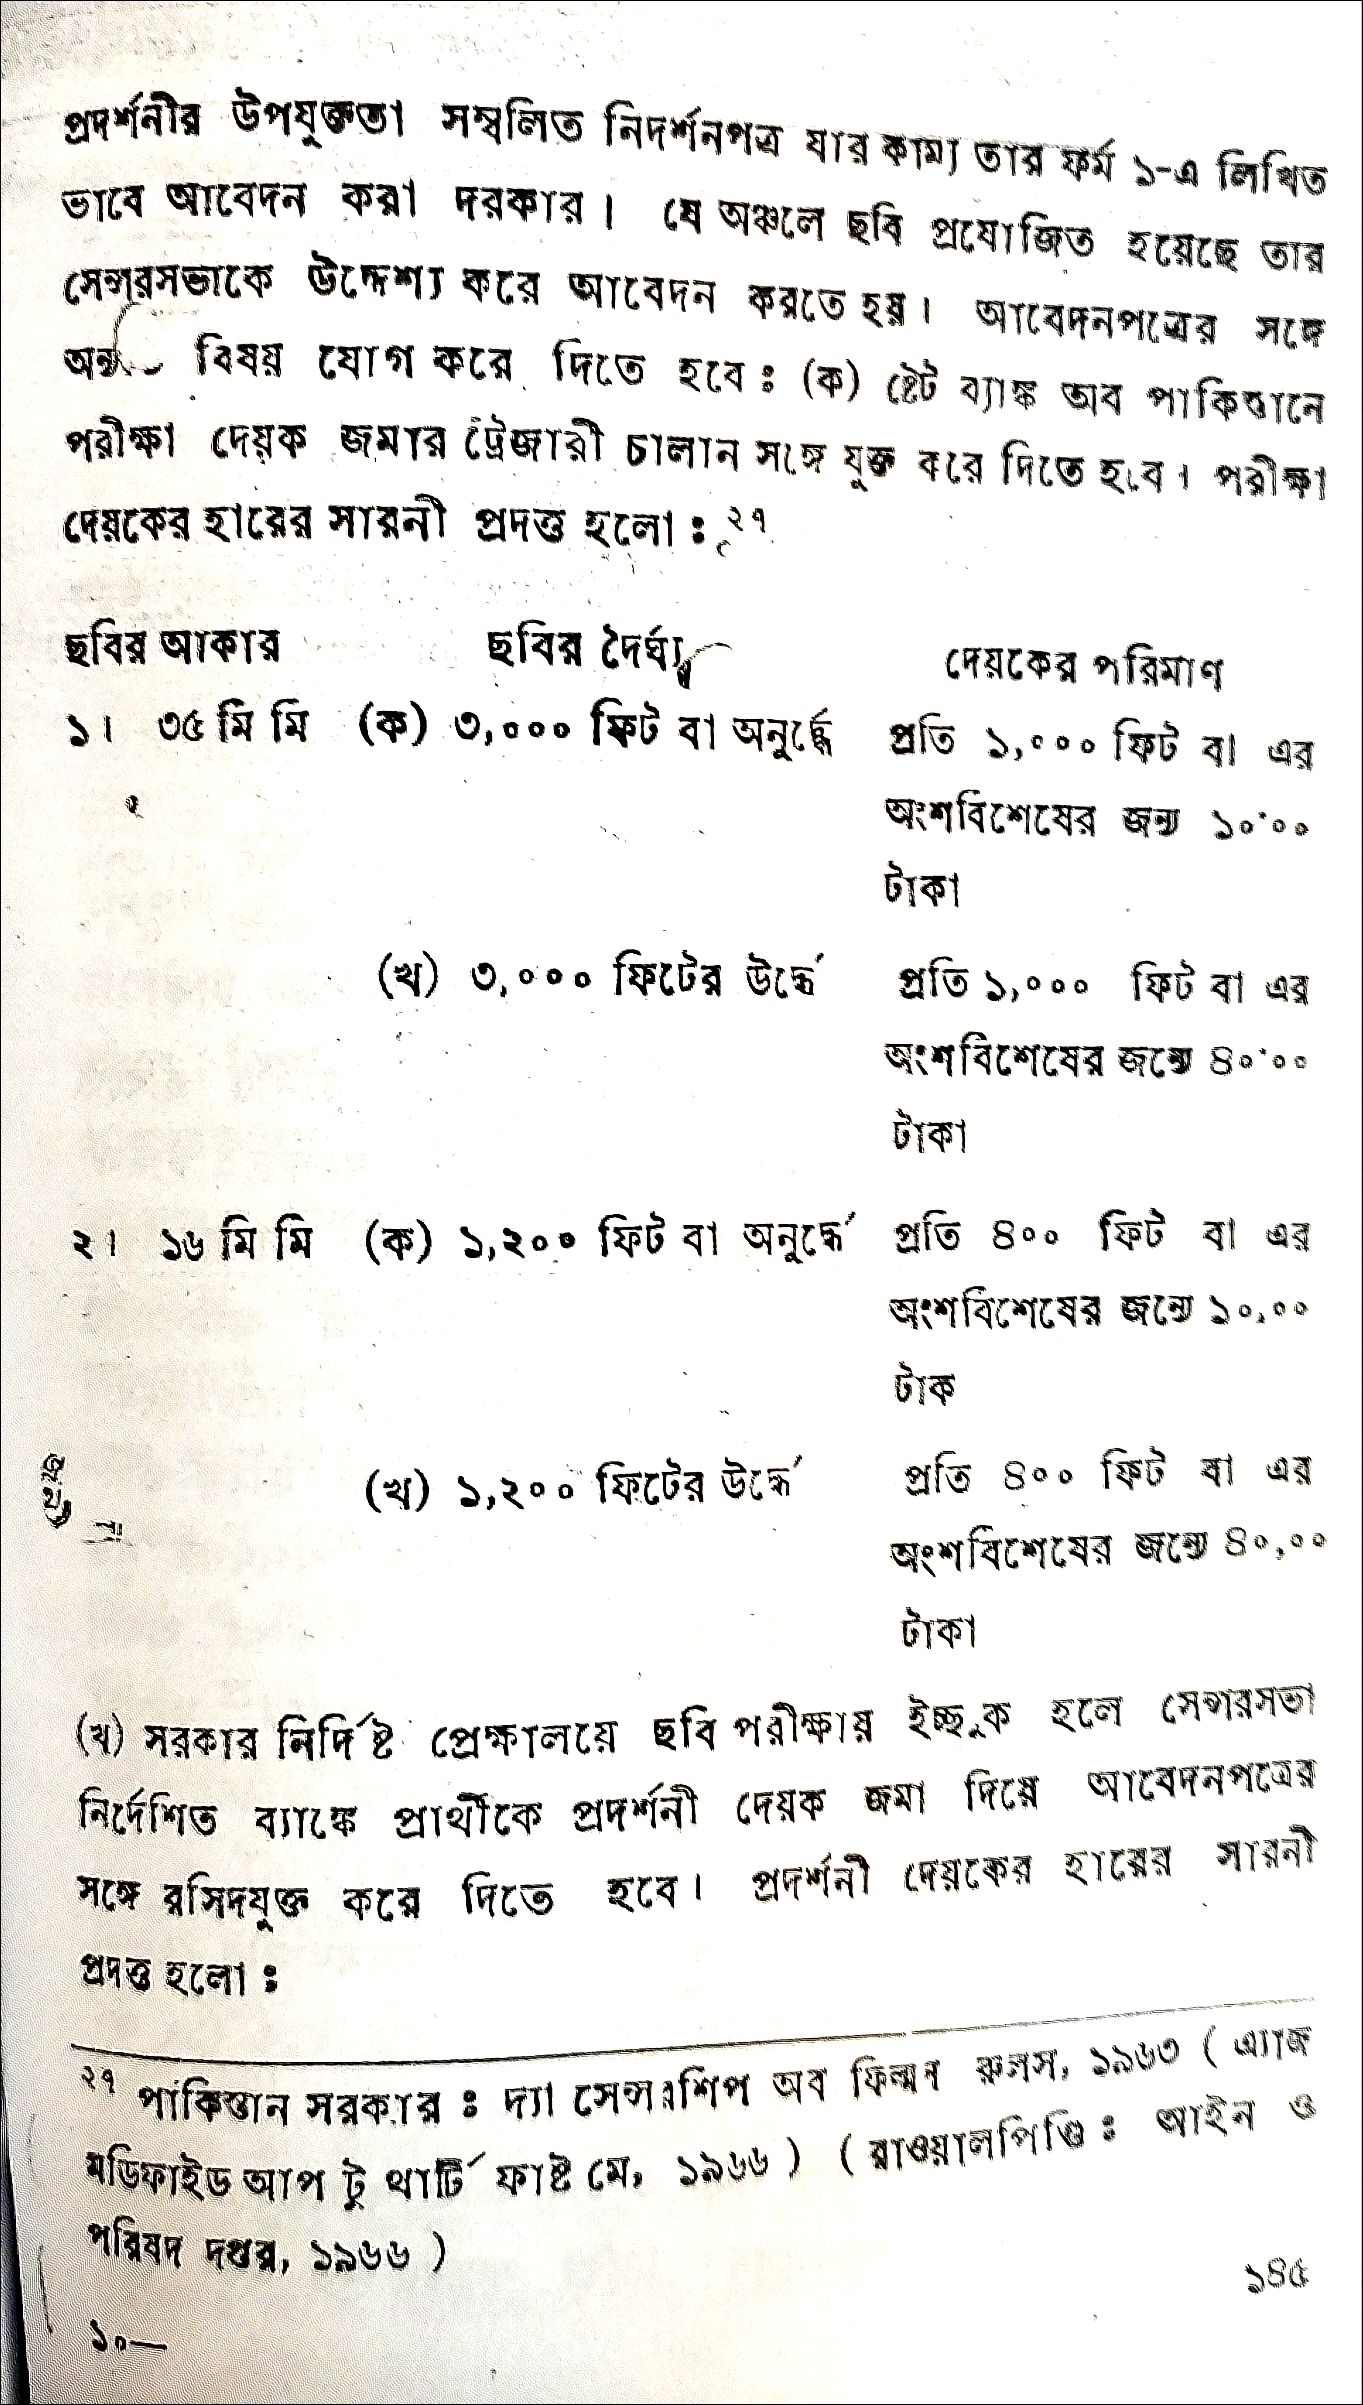 প্রদর্শনীর উপযুক্ততা সম্বলিত নিদর্শনপত্র যার কাম্য তার ফর্ম ১-এ লিখিত
ভাবে আবেদন করা দরকার। যে অঞ্চলে ছবি প্রযোজিত হয়েছে তার
সেন্সরসভাকে উদ্দেশ্য করে আবেদন করতে হয়। আবেদনপত্রের সঙ্গে
বিষয় যোগ করে দিতে হবে ঃ (ক) ষ্টেট ব্যাঙ্ক অব পাকিস্তানে
পরীক্ষা দেয়ক জমার ট্রেজারী চালান সঙ্গে যুক্ত করে দিতে হবে। পরীক্ষা
দেয়কের হারের সারনী প্রদত্ত হলো ঃ ২৭
ছবির আকার ছবির দৈর্ঘ্য দেয়কের পরিমাণ
১। ৩৫ মি মি (ক) ৩,০০০ ফিট বা অনুর্দ্ধে প্রতি ১,০০০ ফিট বা এর
অংশবিশেষের জন্য ১০·০০
টাকা
(খ) ৩,০০০ ফিটের উর্দ্ধে প্রতি ১,০০০ ফিট বা এর
অংশবিশেষের জন্যে ৪০·০০
টাকা
২। ১৬ মি মি (ক) ১,২০০ ফিট বা অনুর্দ্ধে প্রতি ৪০০ ফিট বা এর
অংশবিশেষের জন্যে ১০.০০
টাক
(খ) ১,২০০ ফিটের উর্দ্ধে প্রতি ৪০০ ফিট বা এর
অংশবিশেষের জন্যে ৪০.০০
টাকা
(খ) সরকার নির্দিষ্ট প্রেক্ষালয়ে ছবি পরীক্ষায় ইচ্ছুক হলে সেন্সরসভা
নির্দেশিত ব্যাঙ্কে প্রার্থীকে প্রদর্শনী দেয়ক জমা দিয়ে আবেদনপত্রের
সঙ্গে রসিদযুক্ত করে দিতে হবে। প্রদর্শনী দেয়কের হারের সারনী
প্রদত্ত হলো ঃ
২৭ পাকিস্তান সরকার ঃ দ্যা সেন্সরশিপ অব ফিল্মস রুলস, ১৯৬৩ ( এ্যাজ
মডিফাইড আপ টু থার্টি ফাষ্ট মে, ১৯৬৬ ) ( রাওয়ালপিণ্ডি ঃ আইন ও
পরিষদ দপ্তর, ১৯৬৬ )
১৪৫
১০—